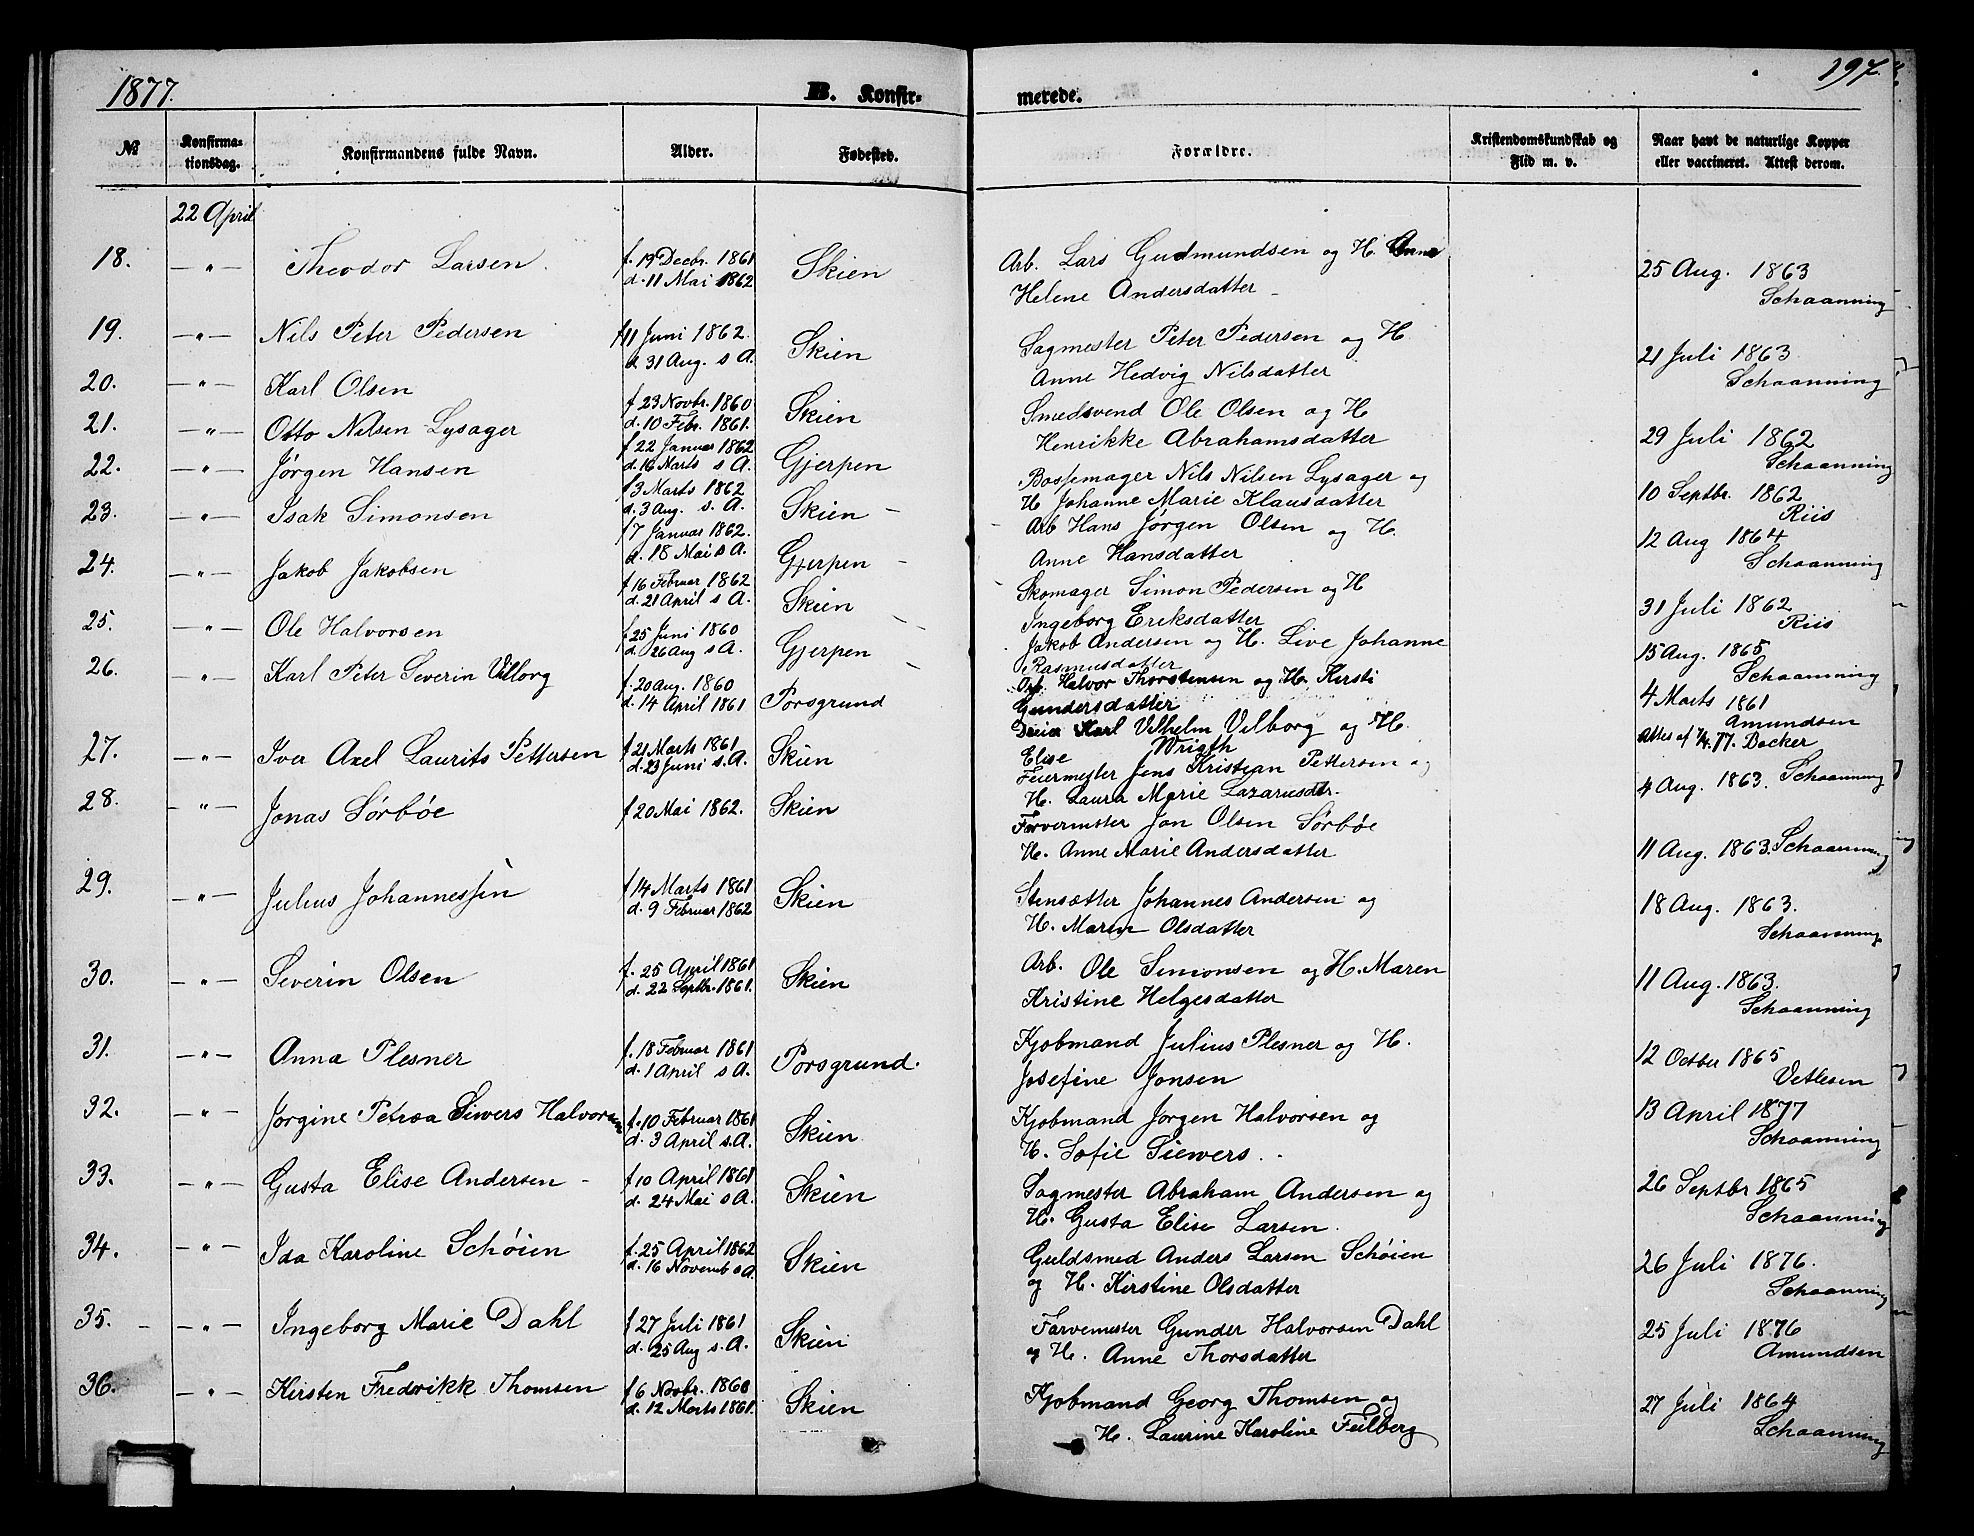 1877. B. Konfir- merede. 197.
№ Konfirma- Konfirmandens fulde Navn. Alder. Fødested. Forældre. Kristendomskundskab og Naar havt de naturlige Kopper
tionsdag. Flid m. v. eller vaccineret. Attest derom.
22 April
18. —"— Theodor Larsen. f. 19 Decbr. 1861 Skien Arb. Lars Gudmundsen og H. Anne 25 Aug. 1863
d. 11 Mai 1862 Helene Andersdatter Schaanning
19. —"— Nils Peter Pedersen f 11 Juni 1862 Skien Sagmester Peter Pedersen og H 21 Juli 1863
d 31 Aug. s A. Anne Hedvig Nilsdatter Schaanning
20. —"— Karl Olsen f 23 Novbr. 1860 Skien Smedsvend Ole Olsen og H 29 Juli 1862
d. 10 Febr. 1861. Henrikke Abrahamsdatter Schaanning
21. —"— Otto Nilsen Lysager f 22 Januar 1862 Gjerpen Bøssemager Nils Nilsen Lysager og 10 Septbr. 1862
d. 16 Marts s A. H Johanne Marie Klausdatter Riis
22. —"— Jørgen Hansen f 3 Marts 1862 Skien Arb Hans Jørgen Olsen og H. 12 Aug 1864
d. 3 Aug. s. A. Anne Hansdatter Schaanning
23. —"— Isak Simonsen f 7 Januar 1862. Gjerpen Skomager Simon Pedersen og H 31 Juli 1862
d. 18 Mai s A. Ingeborg Eriksdatter Riis
24. —"— Jakob Jakobsen f 16 Februar 1862 Skien Jakob Andersen og H. Live Johanne 15 Aug. 1865
d. 21 April s A. Rasmusdatter Schaanning
25. —"— Ole Halvorsen f 25 Juni 1860 Gjerpen Arb. Halvor Thorstensen og H. Kirsti 4 Marts 1861
d. 26 Aug s A. Gundersdatter Amundsen
26. —"— Karl Peter Severin Vilborg f. 20 Aug. 1860 Porsgrund Dreier Karl Vilhelm Vilborg og H. Attes af 7/4. 77. Backer
d. 14 April 1861 Elise Wrigth
27. —"— Iver Axel Laurits Pettersen f 21 Marts 1861 Skien Feiermester Jens Kristian Pettersen og 4 Aug. 1863. Schaanning
d. 23 Juni s. A. H. Laura Marie Lazarusdtr.
28. —"— Jonas Sørbøe f 20 Mai 1862. Skien Farvermester Jon Olsen Sørbøe 11 Aug. 1863. Schaanning
H. Anne Marie Andersdatter
29. —"— Julius Johannessen f 14 Marts 1861 Skien Stensætter Johannes Andersen og 18 Aug. 1863.
d. 9 Februar 1862 H. Maren Olsdatter Schaanning
30. —"— Severin Olsen f. 25 April 1861 Skien Arb. Ole Simonsen og H. Maren 11 Aug. 1863.
d. 22 Septbr. 1861. Kristine Helgesdatter Schaanning
31. —"— Anna Plesner f. 18 Februar 1861 Porsgrund. Kjøbmand Julius Plesner og H. 12 Octber 1865
d. 1 April s A. Josefine Jonsen Vetlesen
32. —"— Jørgine Petræa Siwers Halvorsen f. 10 Februar 1861 Skien Kjøbmand Jørgen Halvorsen og 13 April 1877
d. 3 April s. A. H. Sofie Siewers. Schaanning
33. —"— Gusta Elise Andersen f 10 April 1861 Skien Sagmester Abraham Andersen og 26 Septbr 1865
d. 24 Mai s A. H. Gusta Elise Larsen Schaanning
34. —"— Ida Karoline Schøien f. 25 April 1862 Skien Guldsmed Anders Larsen Schøien 26 Juli 1876.
d. 16 Novemb s A. og H. Kirstine Olsdatter Schaanning
35. —"— Ingeborg Marie Dahl f 27 Juli 1861 Skien Farvemester Gunder Halvorsen Dahl 25 Juli 1876
d. 25 Aug s. A. og H. Anne Thorsdatter Amundsen
36. —"— Kirsten Fredrikk Thomsen f 6 Novbr. 1860 Skien Kjøbmand Georg Thomsen og 27 Juli 1864
d. 12 Marts 1861. H. Laurine Karoline Feilberg Schaanning